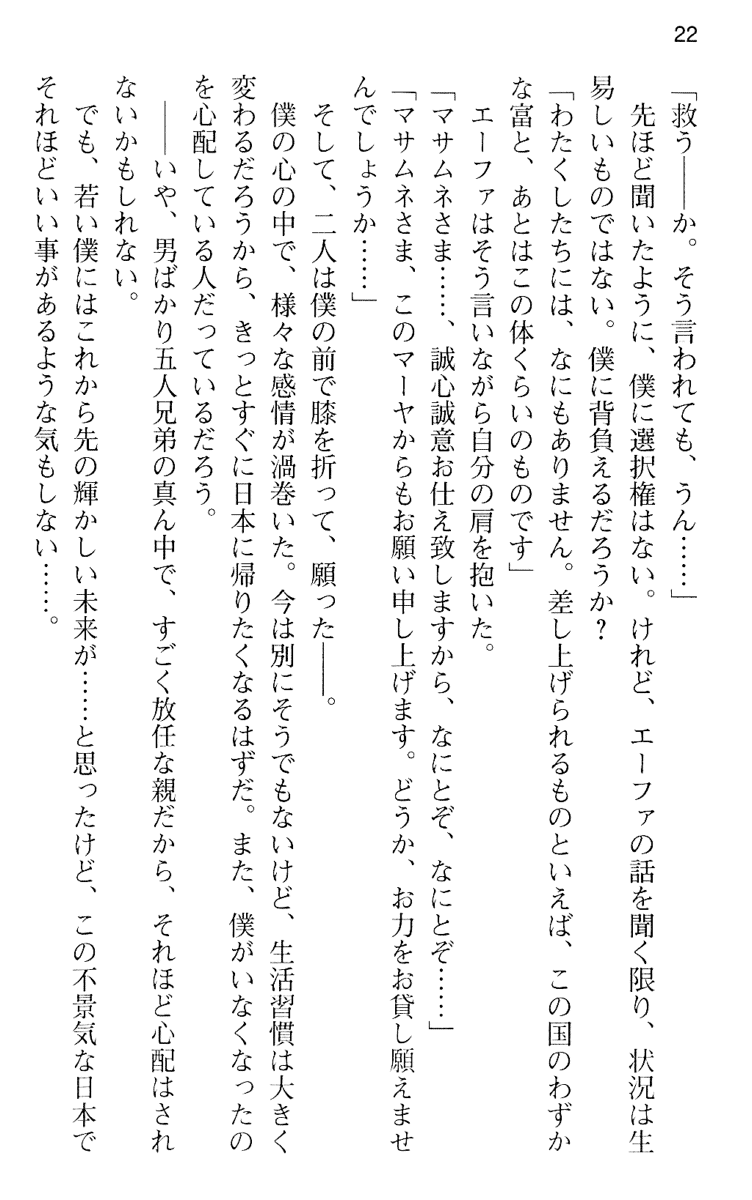 22
「救う――か。そう言われても、うん……」
　先ほど聞いたように、僕に選択権はない。けれど、エーファの話を聞く限り、状況は生
易しいものではない。僕に背負えるだろうか？
「わたくしたちには、なにもありません。差し上げられるものといえば、この国のわずか
な富と、あとはこの体くらいのものです」
　エーファはそう言いながら自分の肩を抱いた。
「マサムネさま……、誠心誠意お仕え致しますから、なにとぞ、なにとぞ……」
「マサムネさま、このマーヤからもお願い申し上げます。どうか、お力をお貸し願えませ
んでしょうか……」
　そして、二人は僕の前で膝を折って、願った――。
　僕の心の中で、様々な感情が渦巻いた。今は別にそうでもないけど、生活習慣は大きく
変わるだろうから、きっとすぐに日本に帰りたくなるはずだ。また、僕がいなくなったの
を心配している人だっているだろう。
　――いや、男ばかり五人兄弟の真ん中で、すごく放任な親だから、それほど心配はされ
ないかもしれない。
　でも、若い僕にはこれから先の輝かしい未来が……と思ったけど、この不景気な日本で
それほどいい事があるような気もしない……。